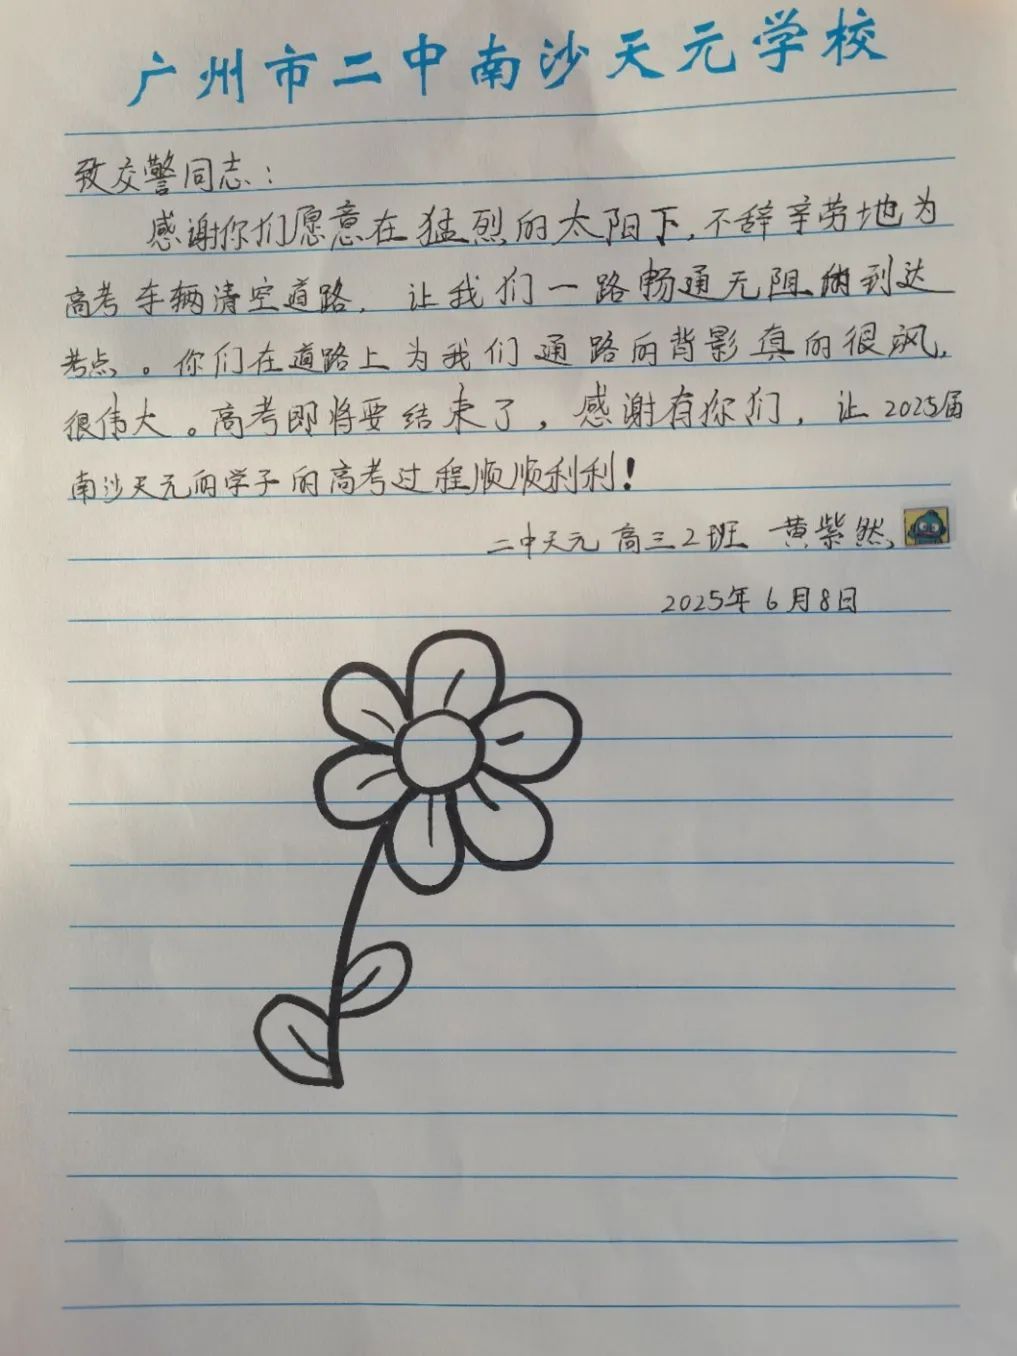 广州市二中南沙天元学校
致交警同志：
感谢你们愿意在猛烈的太阳下，不辞辛劳地为
高考车辆清空道路，让我们一路畅通无阻的到达
考点。你们在道路上为我们通路的背影真的很飒，
很伟大。高考即将要结束了，感谢有你们，让2025届
南沙天元的学子的高考过程顺顺利利！
二中天元高三2班 黄紫然
2025年6月8日